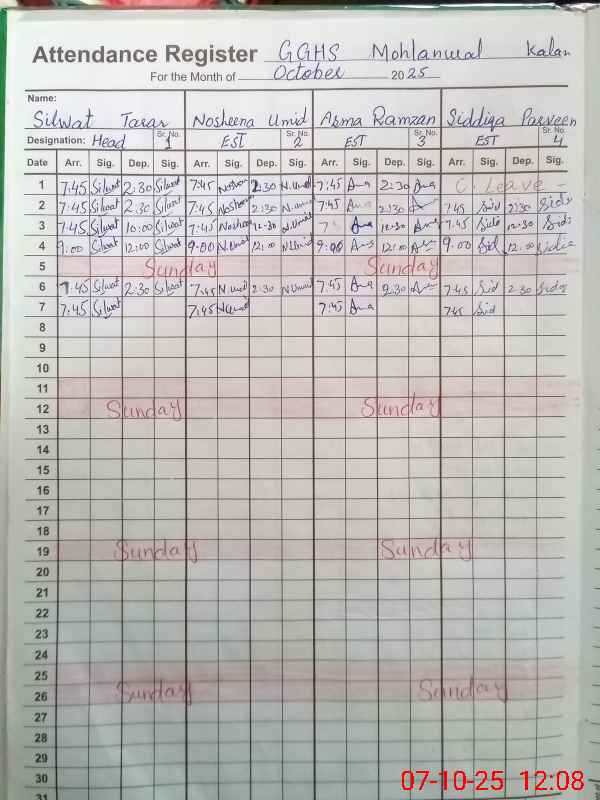 Attendance Register GGHS Mohlanwal Kalan
For the Month of October 2025
Name:
Silwat Tarar Nosheena Umid Asma Ramzan Siddiqa Parveen
Designation: Head Sr. No. 1 EST Sr. No. 2 EST Sr. No. 3 EST Sr. No. 4
Date Arr. Sig. Dep. Sig. Arr. Sig. Dep. Sig. Arr. Sig. Dep. Sig. Arr. Sig. Dep. Sig.
1 7:45 Silwat 2:30 Silwat 7:45 2:30 N.Umid 7:45 2:30 C. Leave
2 7:45 Silwat 2:30 Silwat 7:45 2:30 N.Umid 7:45 2:30 7:45 Sid 2:30
3 7:45 Silwat 10:00 Silwat 7:45 12:30 N.Umid 12:30 7:45 12:30
4 9:00 Silwat 12:00 Silwat 9:00 N.Umid 12:00 N.Umid 9:00 12:00 9:00 Sid 12:00
5 Sunday Sunday
6 7:45 Silwat 2:30 Silwat 7:45 N.Umid 2:30 N.Umid 7:45 2:30 7:45 Sid 2:30
7 7:45 Silwat 7:45 N.Umid 7:45 7:45 Sid
8
9
10
11
12 Sunday Sunday
13
14
15
16
17
18
19 Sunday Sunday
20
21
22
23
24
25
26 Sunday Sunday
27
28
29
30
31
07-10-25 12:08